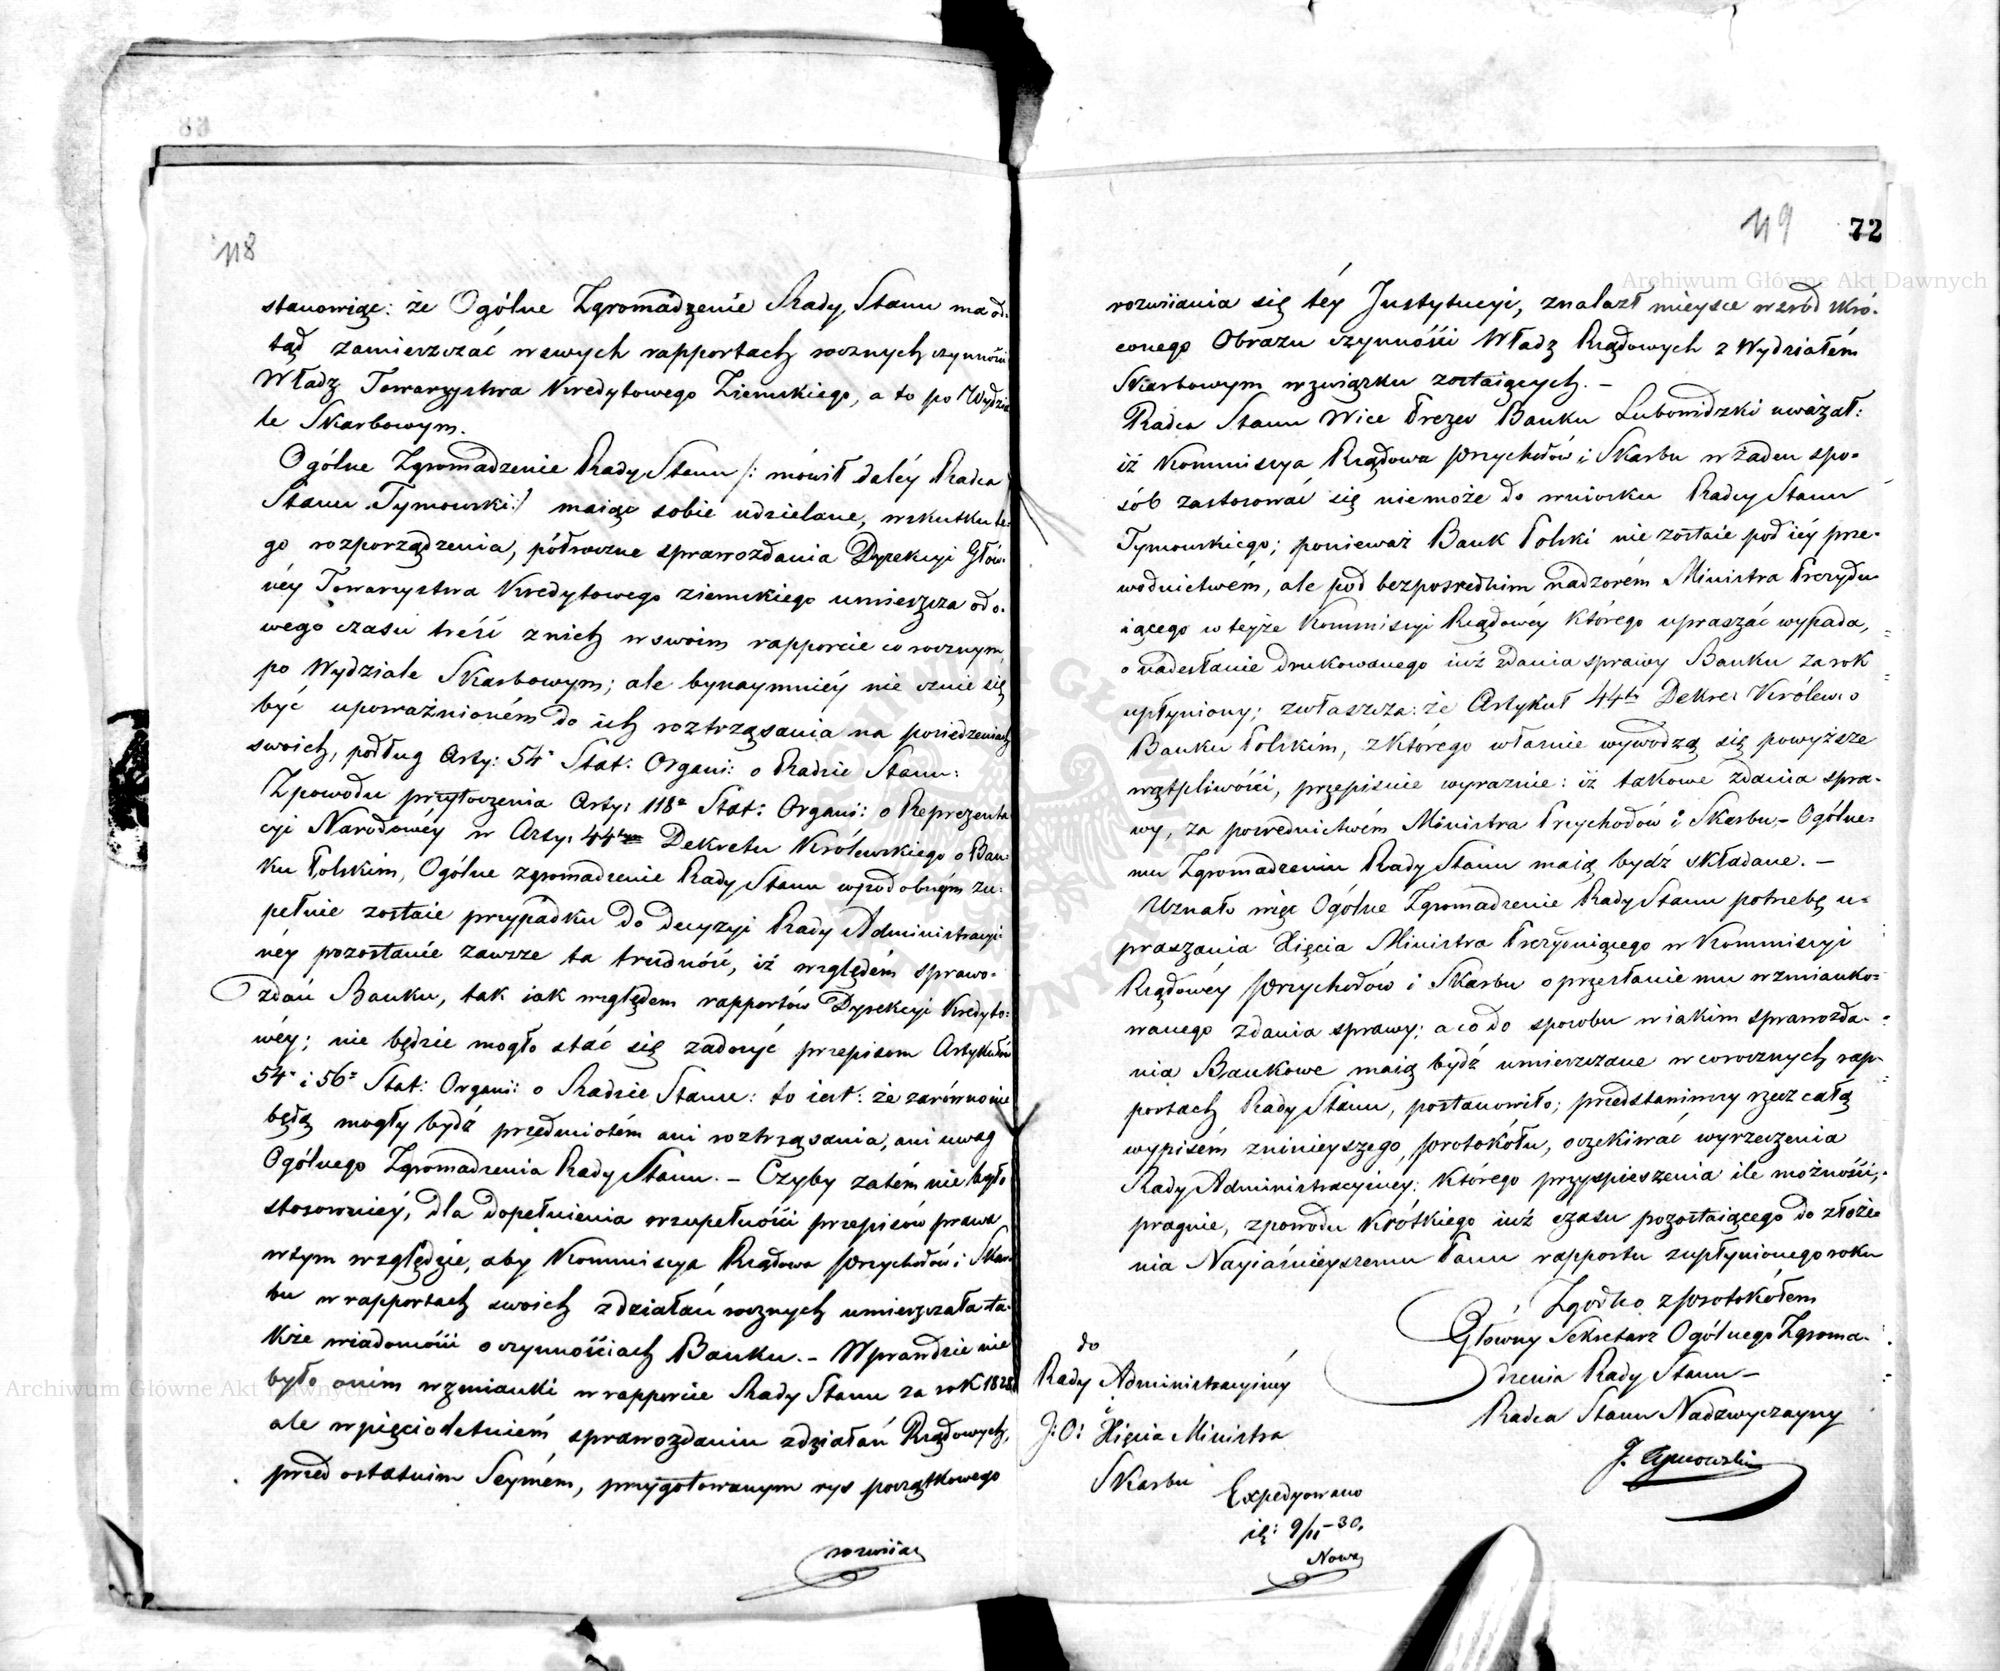 118
stanowiąc: że Ogólne Zgromadzenie Rady Stanu ma od-
tąd zamieszczać w swych rapportach rocznych czynności
Władz Towarzystwa Kredytowego Ziemskiego, a to po Wydzia
le Skarbowym.
Ogólne Zgromadzenie Rady Stanu /: mówił daléy Radca
Stanu Tymowski :/ maiąc sobie udzielane, w skutku te-
go rozporządzenia, półroczne sprawozdania Dyrekcyi Głów-
néy Towarzystwa Kredytowego ziemskiego umieszcza od o-
wego czasu treść z nich w swoim rapporcie co rocznym
po Wydziale Skarbowym; ale bynaymniéy nie czuie się
być upoważnioném do ich roztrząsania na posiedzeniach
swoich, podług Arty: 54° Stat: Organi: o Radzie Stanu:
Z powodu przytoczenia Arty: 118° Stat: Organi: o Reprezenta
cyi Narodowéy w Arty: 44tym Dekretu Królewskiego o Ban-
ku Polskim, Ogólne zgromadzenie Rady Stanu w podobnym zu-
pełnie zostaie przypadku do decyzyi Rady Administracyi-
néy pozostanie zawsze ta trudność, iż względém sprawo-
zdań Banku, tak iak względem rapportów Dyrekcyi Kredyto-
wéy; nie będzie mogło stać się zadosyć przepisom Artykułów
54° i 56° Stat: Organi: o Radzie Stanu: to iest: że zarówno nie
będą mogły bydź przedmiotém ani roztrząsania, ani uwag
Ogólnego Zgromadzenia Rady Stanu. – Czyby zatém nie było
stosowniéy, dla dopełnienia w zupełności przepisów prawa
w tym względzie, aby Kommissya Rządowa Przychodów i Skar-
bu w rapportach swoich z działań rocznych umieszczała ta-
kże wiadomości o czynnościach Banku. – Wprawdzie nie
było o nim wzmianki w rapporcie Rady Stanu za rok 1828
ale w pięcioletniém sprawozdaniu z działań Rządowych,
przed ostatnim Seymém, przygotowanym rys początkowego
rozwiian
119 72
rozwiiania się téy Instytucyi, znalazł mieysce wśród skró-
conego Obrazu czynności Władz Rządowych z Wydziałém
Skarbowym w związku zostaiących. –
Radca Stanu Wice Prezes Banku Lubowidzki uważał:
iż Kommissya Rządowa Przychodów i Skarbu w żaden spo-
sób zastosować się nie może do wniosku Radcy Stanu
Tymowskiego; ponieważ Bank Polski nie zostaie pod iéy prze-
wodnictwém, ale pod bezpośrednim nadzorém Ministra Prezydu-
iącego w teyże Kommissyi Rządowéy którego upraszać wypada,
o nadesłanie drukowanego iuż zdania sprawy Banku za rok
upłyniony; zwłaszcza: że Artykuł 44ty Dekre: Królew: o
Banku Polskim, z którego właśnie wywodzą się powyższe
wątpliwości, przepisuie wyraznie: iż takowe zdania spra-
wy, za pośrednictwém Ministra Przychodów i Skarbu – Ogólne-
mu Zgromadzeniu Rady Stanu maią bydź składane. –
Uznało więc Ogólne Zgromadzenie Rady Stanu potrzebę u-
praszania Xięcia Ministra Prezyduiącego w Kommissyi
Rządowéy Przychodów i Skarbu o przesłanie mu wzmianko-
wanego zdania sprawy; a co do sposobu w iakim sprawozda-
nia Bankowe maią bydź umieszczane w corocznych rap-
portach Rady Stanu, postanowiło; przedstawiwszy rzecz całą
wypisém z ninieyszego, Protokółu, oczekiwać wyrzeczenia
Rady Administracyiney: którego przyspieszenia ile możności,
pragnie, z powodu krótkiego iuż czasu pozostaiącego do złoże-
nia Nayiaśnieyszemu Panu rapportu z upłynionego roku
Zgodno z Protokółem
Główny Sekretarz Ogólnego Zgroma-
dzenia Rady Stanu –
Radca Stanu Nadzwyczayny
J. Tymowski
do
Rady Administracyiney
i
J: O: Xięcia Ministra
Skarbu
Expedyowano
9/11 – 30.
Archiwum Główne Akt Dawnych
Archiwum Główne Akt Dawnych